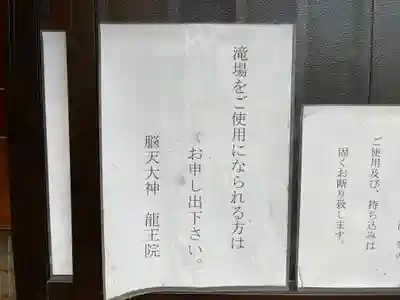 滝場をご使用になられる方は
お申し出下さい。
脳天大神 龍王院
ご使用及び、持ち込みは
固くお断り致します。